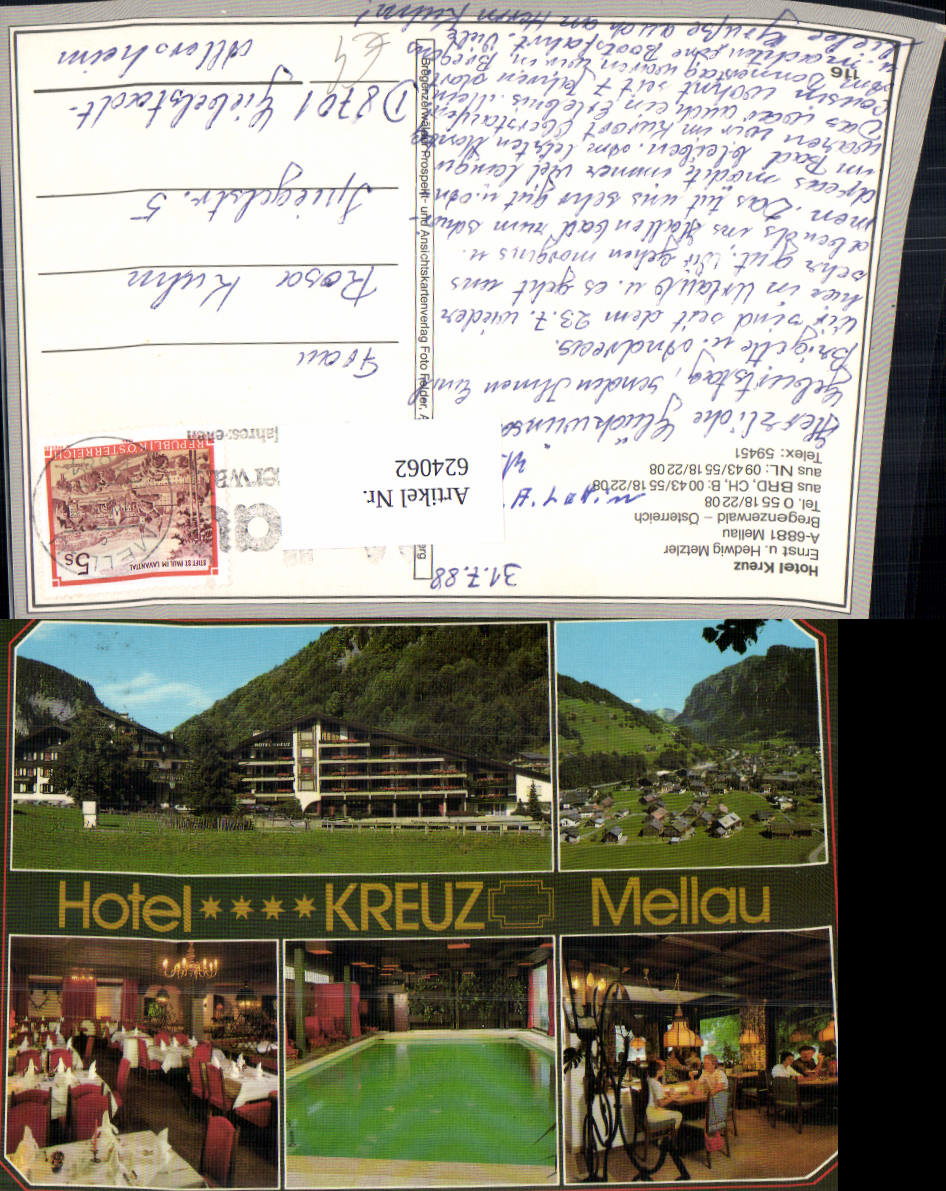 Hotel Kreuz
Ernst u. Hedwig Metzler
A-6881 Mellau
Bregenzerwald – Österreich
Tel. 0 55 18/22 08
aus BRD, CH, B: 00 43/55 18/22 08
aus NL: 09 43/55 18/22 08
Telex: 59451
31.7.88
Herzliche Glückwünsche
Geburtstag, senden Ihnen
Brigitte u. Andreas.
Wir sind seit dem 23.7. wieder
hier im Urlaub u. es geht uns
sehr gut. Wir gehen morgens u.
abends ins Hallenbad zum schwim-
men. Das tut uns sehr gut u.
Andreas möchte immer viel länger
im Bad bleiben. Am letzten Montag
waren wir im Kurort Oberstaufen
Das war auch ein Erlebnis. Mein
Cousin wohnt seit 7 Jahren dort
Am Donnerstag waren wir in Bregenz
u. machten eine Bootsfahrt. Viele
Grüße auch an Herrn Kuhn!
116
Bregenzerwälder Prospekt- und Ansichtskartenverlag Foto Felder, A
berg
Artikel Nr.
624062
STIFT ST. PAUL IM LAVANTTAL
5s
REPUBLIK ÖSTERREICH
MELL
Frau
Rosa Kuhn
Spiegelstr. 5
D 8701 Giebelstadt-
Allersheim
€4
Hotel **** KREUZ Mellau
HOTEL KREUZ